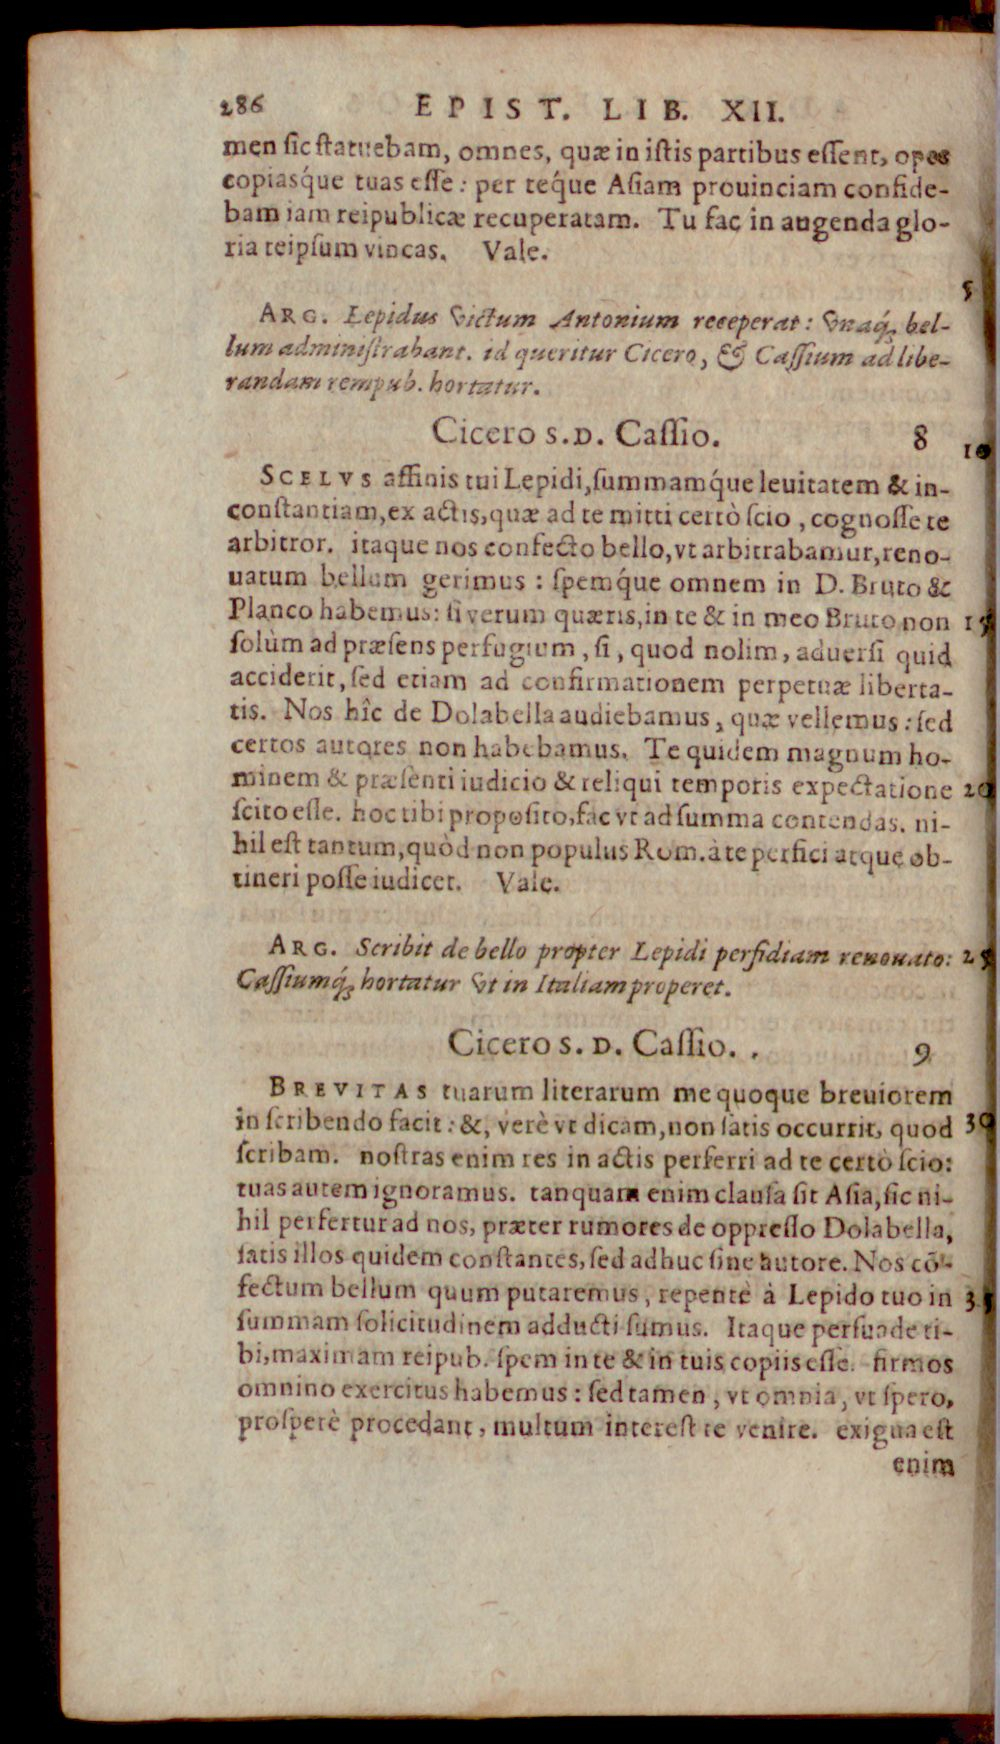 286 EPIST. LIB. XII.
men ſic ſtatuebam, omnes, quæ in iſtis partibus eſſent, opes
copiasq́ue tuas eſſe: per teq́ue Aſiam prouinciam confide-
bam iam reipublicæ recuperatam. Tu fac in augenda glo-
ria teipſum vincas. Vale.
5
ARG. Lepidus victum Antonium receperat: vnaq́; bel-
lum adminiſtrabant. id queritur Cicero, & Caſſium ad libe-
randam rempub. hortatur.
Cicero S.D. Caſſio. 8
10
SCELVS affinis tui Lepidi, ſummamq́ue leuitatem & in-
conſtantiam, ex actis, quæ ad te mitti certò ſcio, cognoſſe te
arbitror. itaque nos confecto bello, vt arbitrabamur, reno-
uatum bellum gerimus: ſpemq́ue omnem in D. Bruto &
Planco habemus: ſi verum quæris, in te & in meo Bruto non 15
ſolùm ad præſens perfugium, ſi, quod nolim, aduerſi quid
acciderit, ſed etiam ad confirmationem perpetuæ liberta-
tis. Nos hîc de Dolabella audiebamus, quæ vellemus: ſed
certos autores non habebamus. Te quidem magnum ho-
minem & præſenti iudicio & reliqui temporis expectatione 20
ſcito eſſe. hoc tibi propoſito, fac vt ad ſumma contendas. ni-
hil eſt tantum, quòd non populus Rom. à te perfici atque ob-
tineri poſſe iudicet. Vale.
ARG. Scribit de bello propter Lepidi perfidiam renouato: 25
Caſſiumq́; hortatur vt in Italiam properet.
Cicero S. D. Caſſio. . 9
BREVITAS tuarum literarum me quoque breuiorem
in ſcribendo facit: &, verè vt dicam, non ſatis occurrit, quod 30
ſcribam. noſtras enim res in actis perferri ad te certò ſcio:
tuas autem ignoramus. tanquam enim clauſa ſit Aſia, ſic ni-
hil perfertur ad nos, præter rumores de oppreſſo Dolabella,
ſatis illos quidem conſtantes, ſed adhuc ſine autore. Nos cō-
fectum bellum quum putaremus, repentè à Lepido tuo in 35
ſummam ſolicitudinem adducti ſumus. Itaque perſuade ti-
bi, maximam reipub. ſpem in te & in tuis copiis eſſe. firmos
omnino exercitus habemus: ſed tamen, vt omnia, vt ſpero,
proſperè procedant, multum intereſt te venire. exigua eſt
enim